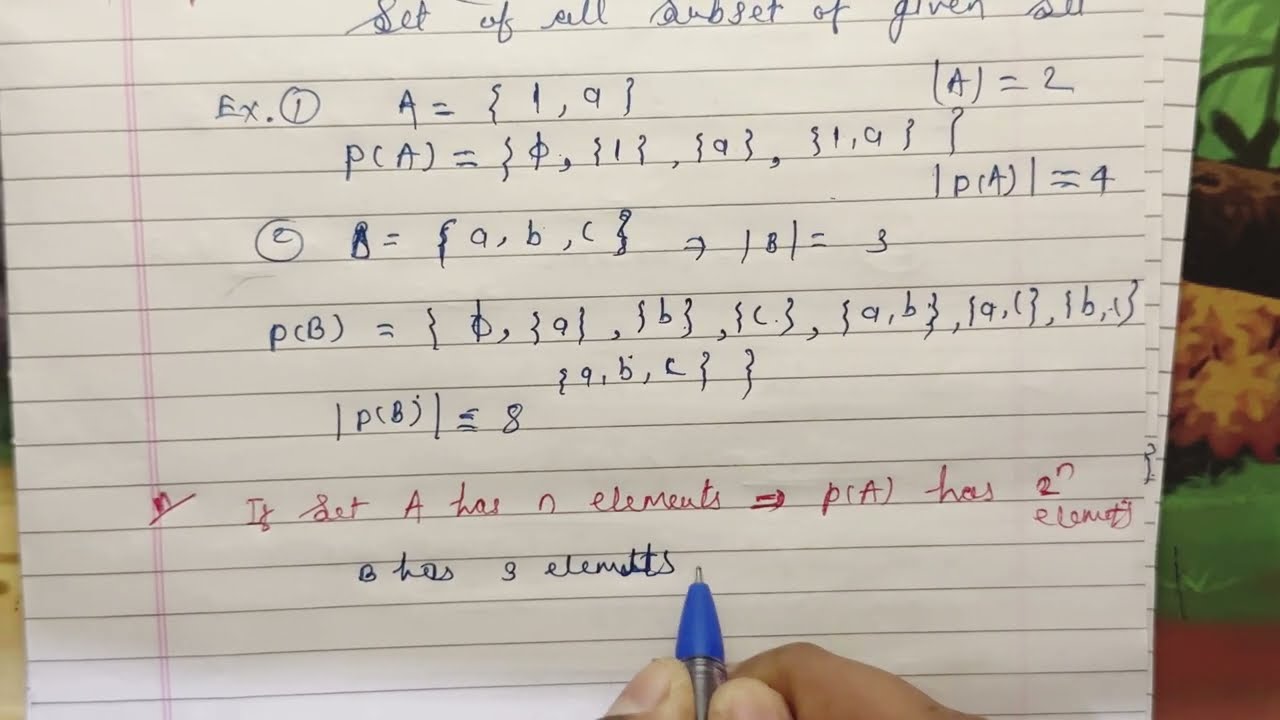 Set of all subset of given set
Ex. ① A = { 1, a } |A| = 2
P(A) = { ϕ, {1}, {a}, {1, a} }
|P(A)| = 4
② B = { a, b, c } ⇒ |B| = 3
P(B) = { ϕ, {a}, {b}, {c}, {a, b}, {a, c}, {b, c}
{a, b, c} }
|P(B)| = 8
If Set A has n elements ⇒ P(A) has 2ⁿ
elements
B has 3 elements